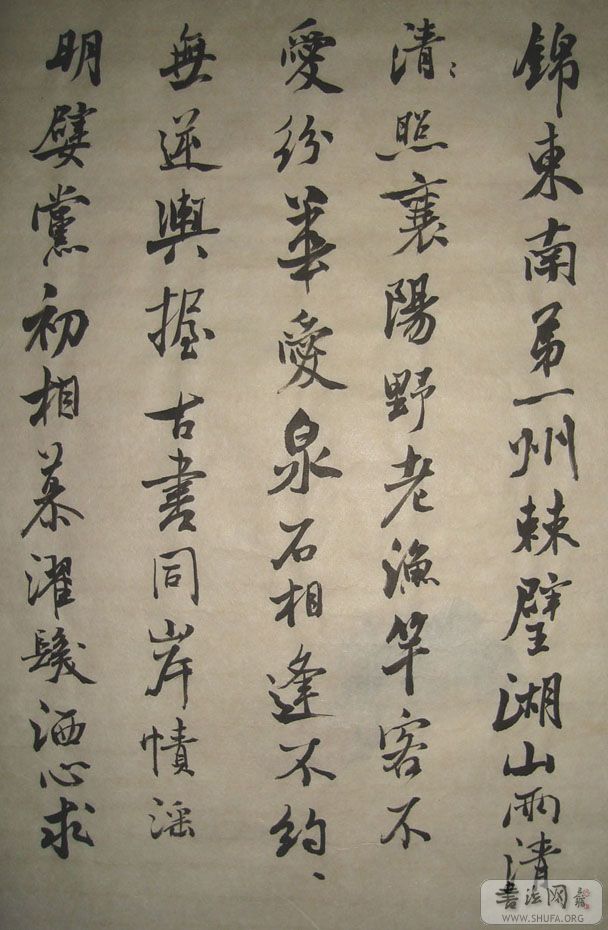 錦東南第一州棘璧湖山兩清
清、照襄陽野老漁竿客不
愛紛華愛泉石相逢不約、
無逆輿握古書同岸幘淫
明嬖黨初相慕濯髮洒心求
書法网
WWW.SHUFA.ORG